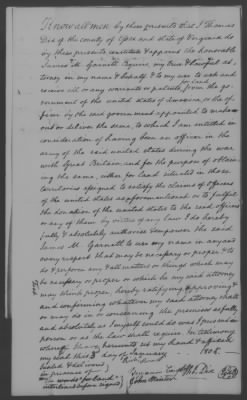 Know all men by these presents that I Thomas
Dix of the county of Essex and state of Virginia do
by these presents constitute & appoint the Honorable
James M. Garnett Esquire, my true & lawful at-
torney in my name & behalf & to my use to ask and
for land
receive all or any warrants or patents, from the go-
vernment of the united states of America, or the of-
ficers by the said government appointed to make
out or deliver the same, to which I am intitled in
consideration of having been an officer in the
army of the said united states during the war
with Great Britain, and for the purpose of obtain-
ing the same, either for land situated in those
territories assigned to satisfy the claims of officers
of the united states as aforementioned or to fulfil
the donation of the united states to the said officers
or any of them by virtue of any law I do hereby
fully & absolutely authorise & empower the said
James M. Garnett to use my name in any and
every respect that may be necessary or proper & to
do & perform any & all matters or things which may
be necessary or proper or which he my said attorney
may think proper, hereby ratifying, approving &
and confirming whatever my said attorney shall
or may do in or concerning the premises as fully
and absolutely as I myself could do was I present in
person or as the law shall require. In testimony
whereof I have hereunto set my hand & affixed
my seal this 3 day of January 1808.
Sealed & delivered
in presence of
the words "for land"
interlined before signed
Tho. Dix